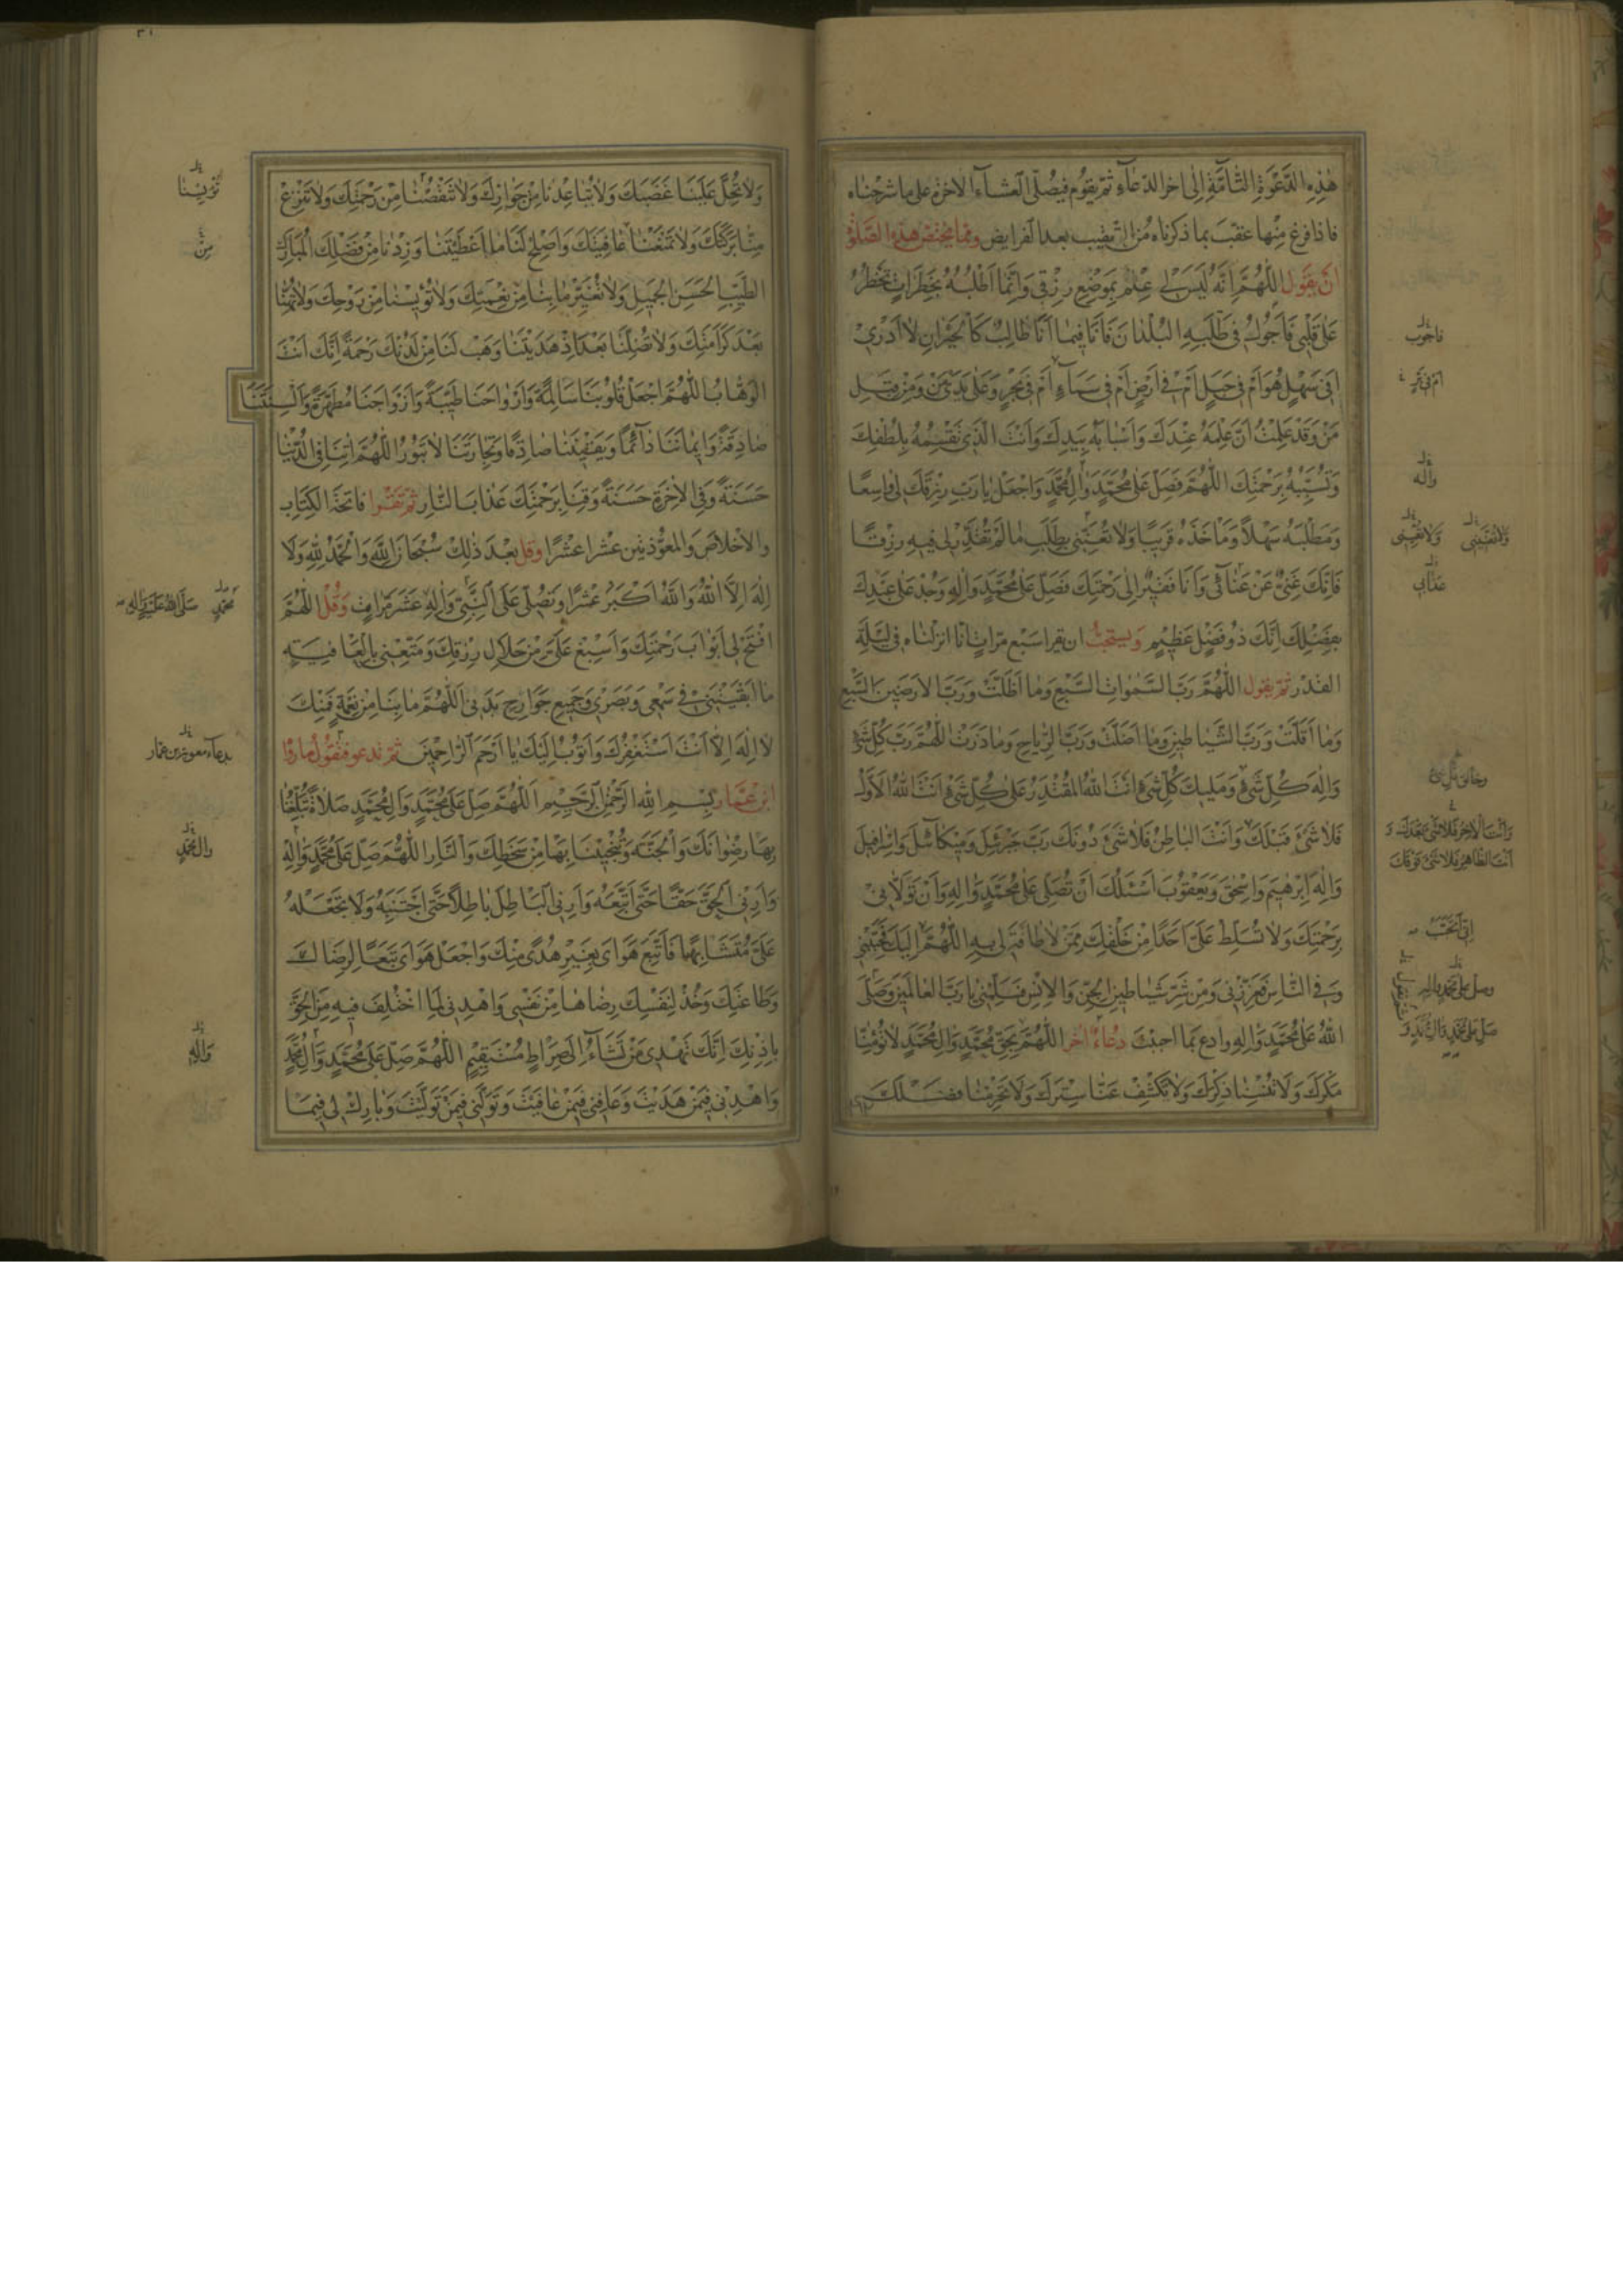 هٰذِهِ الدَّعْوَةِ التَّامَّةِ اِلٰى اخر الدّعآءِ ثمّ يقوُم فيصُلّى العشآءَ الاخرة على ما شرحْناه
فاذا فرغ مِنْها عقّبَ بما ذكرناه مُن التّعقيب بعد الفرايض وممّا يختصّ هذه الصّلوة
اَنْ يَقولَ اَللّٰهُمَّ اِنَّهُ لَيْسَ لى عِلْمٌ بِمَوْضِعِ رِزْقى وَاِنَّما اَطْلُبُهُ بِخَطَراتٍ تَخْطُرُ
عَلى قَلْبى فَاَجُولُ فى طَلَبِهِ الْبُلْدانَ فَاَنَا فيما اَنَا طالِبٌ كَالْحَيْرانِ لا اَدْرى
اَفى سَهْلٍ هُوَ اَمْ فى جَبَلٍ اَمْ فى اَرْضٍ اَمْ فى سَمآءٍ اَمْ فى بَحْرٍ وَعَلى يَدَىْ مَنْ وَمِنْ قِبَلِ
مَنْ وَقَدْ عَلِمْتُ اَنَّ عِلْمَهُ عِنْدَكَ وَاَسْبابَهُ بِيَدِكَ وَاَنْتَ الَّذى تَقْسِمُهُ بِلُطْفِكَ
وَتُسَبِّبُهُ بِرَحْمَتِكَ اَللّٰهُمَّ فَصَلِّ عَلى مُحَمَّدٍ وَالِ مُحَمَّدٍ وَاجْعَلْ يا رَبِّ رِزْقَكَ لى واسِعًا
وَمَطْلَبَهُ سَهْلاً وَمَأْخَذَهُ قَريبًا وَلا تُعَنِّنى بِطَلَبِ ما لَمْ تُقَدِّرْ لى فيهِ رِزْقًا
فَاِنَّكَ غَنِىٌّ عَنْ عَنائى وَاَنَا فَقيرٌ اِلى رَحْمَتِكَ فَصَلِّ عَلى مُحَمَّدٍ وَالِهِ وَجُدْ عَلى عَبْدِكَ
بِفَضْلِكَ اِنَّكَ ذُو فَضْلٍ عَظيمٍ وَيستحبّ ان يقرا سبع مرّاتٍ انّا انزلناه فى ليلَةِ
القدر ثمّ يقول اَللّٰهُمَّ رَبَّ السَّمٰواتِ السَّبْعِ وَما اَظَلَّتْ وَرَبَّ الاَرَضينَ السَّبْعِ
وَما اَقَلَّتْ وَرَبَّ الشَّياطينِ وَما اَضَلَّتْ وَرَبَّ الرِّياحِ وَما ذَرَتْ اَللّٰهُمَّ رَبَّ كُلِّ شَىْءٍ
وَاِلٰهَ كُلِّ شَىْءٍ وَمَليكَ كُلِّ شَىْءٍ اَنْتَ اللّٰهُ الْمُقْتَدِرُ عَلى كُلِّ شَىْءٍ اَنْتَ اللّٰهُ الاَوَّلُ
فَلا شَىْءَ قَبْلَكَ وَاَنْتَ الْباطِنُ فَلا شَىْءَ دُونَكَ رَبَّ جَبْرَئيلَ وَميكآئيلَ وَاِسْرافيلَ
وَاِلٰهَ اِبْرٰهيمَ وَاِسْحٰقَ وَيَعْقُوبَ اَسْئَلُكَ اَنْ تُصَلِّىَ عَلى مُحَمَّدٍ وَالِهِ وَاَنْ تَوَلّانى
بِرَحْمَتِكَ وَلا تُسَلِّطَ عَلَىَّ اَحَدًا مِنْ خَلْقِكَ مِمَّنْ لا طاقَةَ لى بِهِ اَللّٰهُمَّ اِلَيْكَ فَحَبِّبْنى
وَفِى النّاسِ فَعَزِّزْنى وَمِنْ شَرِّ شَياطينِ الْجِنِّ وَالاِنْسِ فَسَلِّمْنى يا رَبَّ الْعالَمينَ وَصَلَّى
اللّٰهُ عَلى مُحَمَّدٍ وَالِهِ وادع بما احببْتَ دُعاءٌ اخر اَللّٰهُمَّ بِحَقِّ مُحَمَّدٍ وَالِ مُحَمَّدٍ لا تُؤْمِنّا
مَكْرَكَ وَلا تُنْسِنا ذِكْرَكَ وَلا تَكْشِفْ عَنّا سِتْرَكَ وَلا تَحْرِمْنا فَضْلَكَ
فاجوب
وآله
عذابي
وَاَنْتَ الاخِرُ فَلا شَىْءَ بَعْدَكَ وَ
اَنْتَ الظّاهِرُ فَلا شَىْءَ فَوْقَكَ
وَلا تُحِلَّ عَلَيْنا غَضَبَكَ وَلا تُباعِدْنا مِنْ جِوارِكَ وَلا تَنْقُصْنا مِنْ رَحْمَتِكَ وَلا تَنْزِعْ
مِنّا بَرَكَتَكَ وَلا تَمْنَعْنا عافِيَتَكَ وَاَصْلِحْ لَنا ما اَعْطَيْتَنا وَزِدْنا مِنْ فَضْلِكَ الْمُبارَكِ
الطَّيِّبِ الْحَسَنِ الْجَميلِ وَلا تُغَيِّرْ ما بِنا مِنْ نِعْمَتِكَ وَلا تُؤْيِسْنا مِنْ رَوْحِكَ وَلا تُهِنّا
بَعْدَ كَرامَتِكَ وَلا تُضِلَّنا بَعْدَ اِذْ هَدَيْتَنا وَهَبْ لَنا مِنْ لَدُنْكَ رَحْمَةً اِنَّكَ اَنْتَ
الْوَهّابُ اَللّٰهُمَّ اجْعَلْ قُلُوبَنا سالِمَةً وَاَرْواحَنا طَيِّبَةً وَاَزْواجَنا مُطَهَّرَةً وَاَلْسِنَتَنا
صادِقَةً وَايمانَنا دآئِمًا وَيَقينَنا صادِقًا وَتِجارَتَنا لا تَبُورُ اَللّٰهُمَّ اتِنا فِى الدُّنْيا
حَسَنَةً وَفِى الاخِرَةِ حَسَنَةً وَقِنا بِرَحْمَتِكَ عَذابَ النّارِ ثمّ تقرا فاتحة الكتاب
والاخلاصَ والمعوّذتين عشرا عشرًا وقل بعد ذٰلِكَ سُبْحانَ اللّٰهِ وَالْحَمْدُ لِلّٰهِ وَلا
اِلٰهَ اِلَّا اللّٰهُ وَاللّٰهُ اَكْبَرُ عشرًا وتصُلّى على النّبىّ وَالِهِ عَشر مرّاتٍ وَقُلْ اَللّٰهُمَّ
افْتَحْ لى اَبْوابَ رَحْمَتِكَ وَاَسْبِغْ عَلَىَّ مِنْ حَلالِ رِزْقِكَ وَمَتِّعْنى بِالْعافِيَةِ
ما اَبْقَيْتَنى فى سَمْعى وَبَصَرى وَجَميعِ جَوارِحِ بَدَنى اَللّٰهُمَّ ما بِنا مِنْ نِعْمَةٍ فَمِنْكَ
لا اِلٰهَ اِلّا اَنْتَ اَسْتَغْفِرُكَ وَاَتُوبُ اِلَيْكَ يا اَرْحَمَ الرّاحِمينَ ثمّ تدعو فتقول ما رواه
ابن عمّار بِسْمِ اللّٰهِ الرَّحْمٰنِ الرَّحيمِ اَللّٰهُمَّ صَلِّ عَلى مُحَمَّدٍ وَالِ مُحَمَّدٍ صَلاةً تُبَلِّغُنا
بِها رِضْوانَكَ وَالْجَنَّةَ وَتُنْجينا بِها مِنْ سَخَطِكَ وَالنّارِ اَللّٰهُمَّ صَلِّ عَلى مُحَمَّدٍ وَالِهِ
وَاَرِنِى الْحَقَّ حَقًّا حَتّى اَتَّبِعَهُ وَاَرِنِى الْباطِلَ باطِلاً حَتّى اَجْتَنِبَهُ وَلا تَجْعَلْهُ
عَلَىَّ مُتَشابِهًا فَاَتَّبِعَ هَواىَ بِغَيْرِ هُدًى مِنْكَ وَاجْعَلْ هَواىَ تَبَعًا لِرِضاكَ
وَطاعَتِكَ وَخُذْ لِنَفْسِكَ رِضاها مِنْ نَفْسى وَاهْدِنى لِمَا اخْتُلِفَ فيهِ مِنَ الْحَقِّ
بِاِذْنِكَ اِنَّكَ تَهْدى مَنْ تَشآءُ اِلى صِراطٍ مُسْتَقيمٍ اَللّٰهُمَّ صَلِّ عَلى مُحَمَّدٍ وَالِ مُحَمَّدٍ
وَاهْدِنى فيمَنْ هَدَيْتَ وَعافِنى فيمَنْ عافَيْتَ وَتَوَلَّنى فيمَنْ تَوَلَّيْتَ وَبارِكْ لى فيما
مِنْ
بدعاء معوية بن عمار
وال محمّدٍ
وَالِهِ